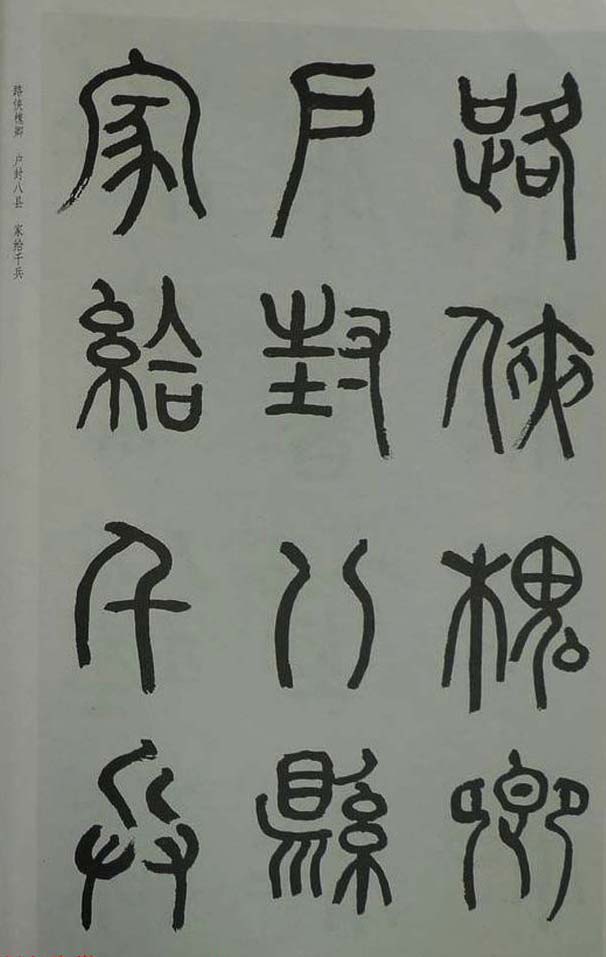 路俠槐卿
户封八縣
家給千兵
路侠槐卿 户封八县 家给千兵